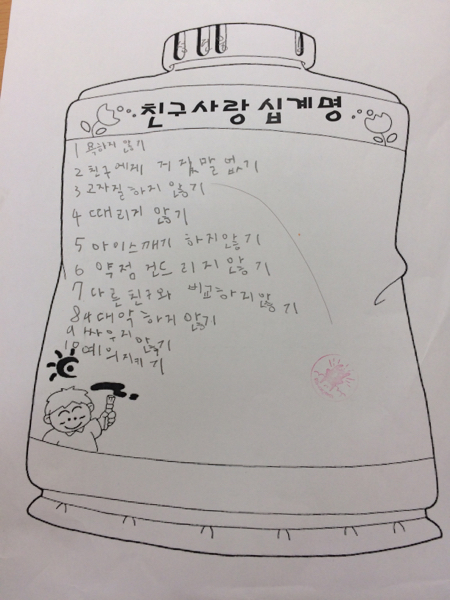 친구사랑 십계명
1 욕하지 않기
2 친구에게 거짓말 없기
3 고자질하지 않기
4 때리지 않기
5 아이스깨기 하지않기
6 약점 건드리지 않기
7 다른친구와 비교하지않기
8 하지 않기
9 싸우지 않기
10 예의지키기